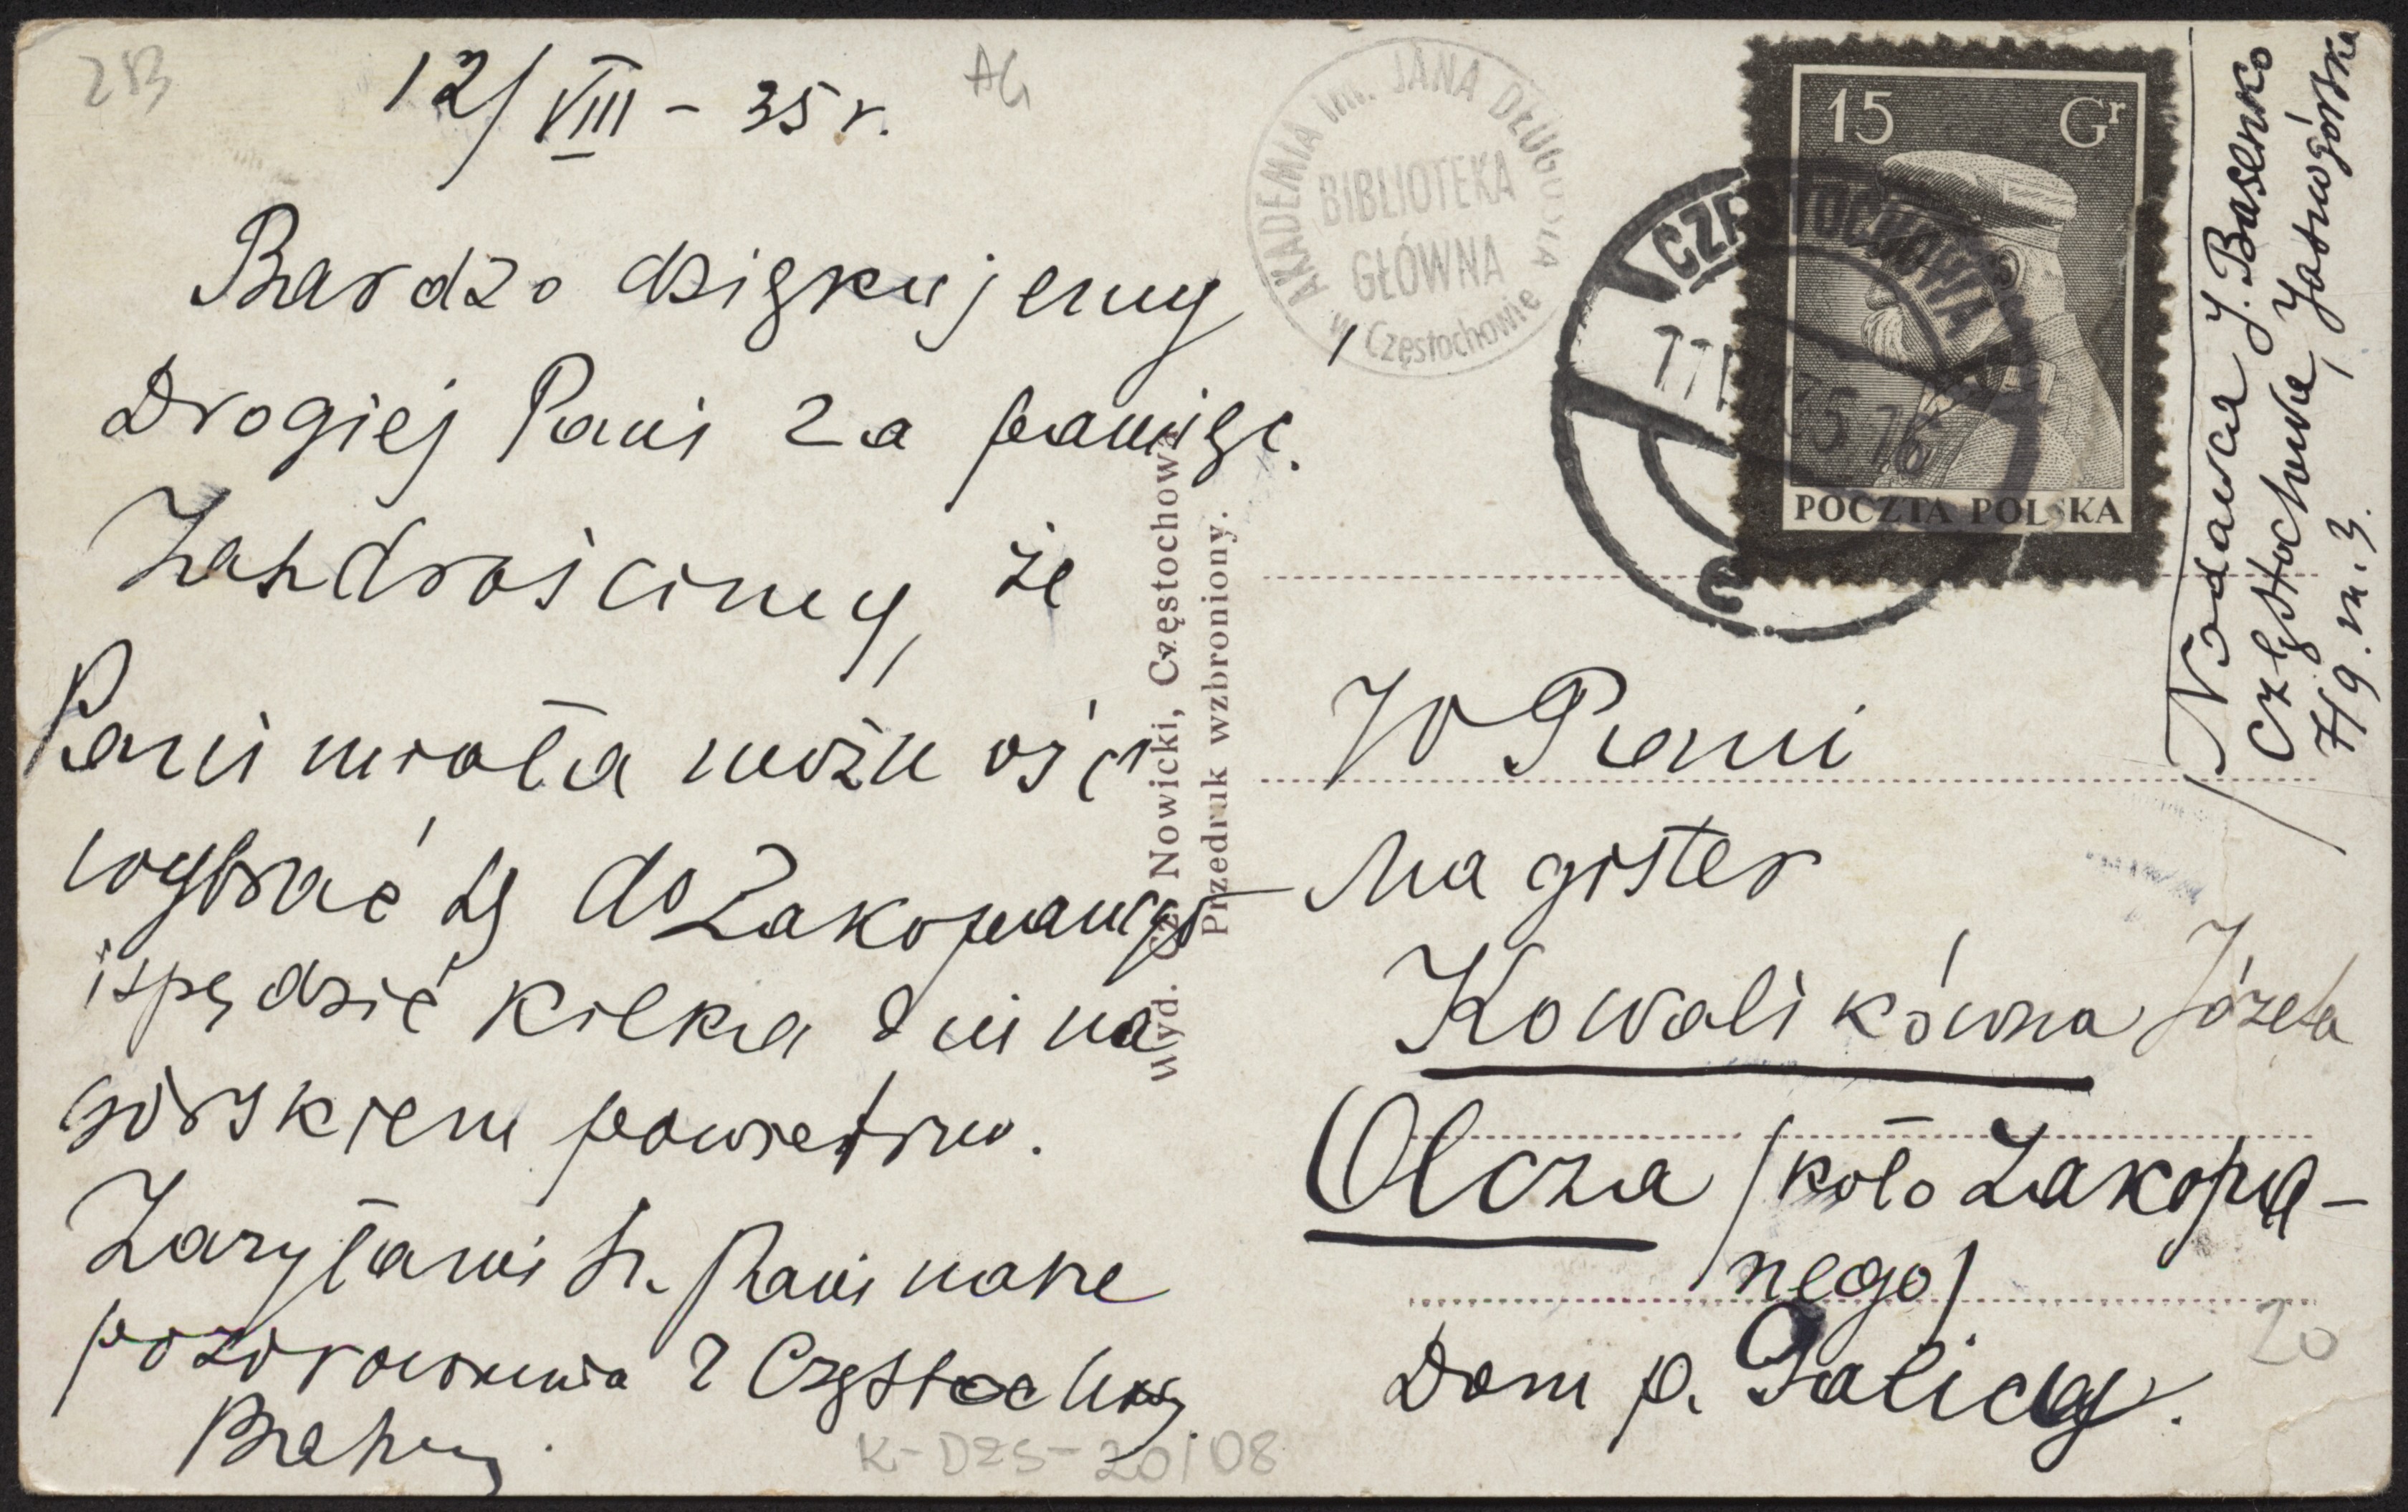 2B
12/VIII - 35 r.
AG
Bardzo dziękujemy
Drogiej Pani za pamięć.
Zazdrościmy, że
Pani miała możność
wybrać się do Zakopanego
i spędzić kilka dni na
górskiem powietrzu.
Zasyłamy Sz. Pani nasze
pozdrowienia z Częstochowy.
K-DZS-20/08
Wyd. Cz. Nowicki, Częstochowa
Przedruk wzbroniony.
AKADEMIA im. JANA DŁUGOSZA
BIBLIOTEKA
GŁÓWNA
w Częstochowie
CZĘSTOCHOWA
35.16
c
15 Gr
POCZTA POLSKA
Nadawca J. Basenko
Częstochowa, Jasnogórska
79 m. 3.
W Pani
Magister
Kowalikówna Józefa
Olcza /koło Zakopa-
nego/
Dom p. Galicy.
20